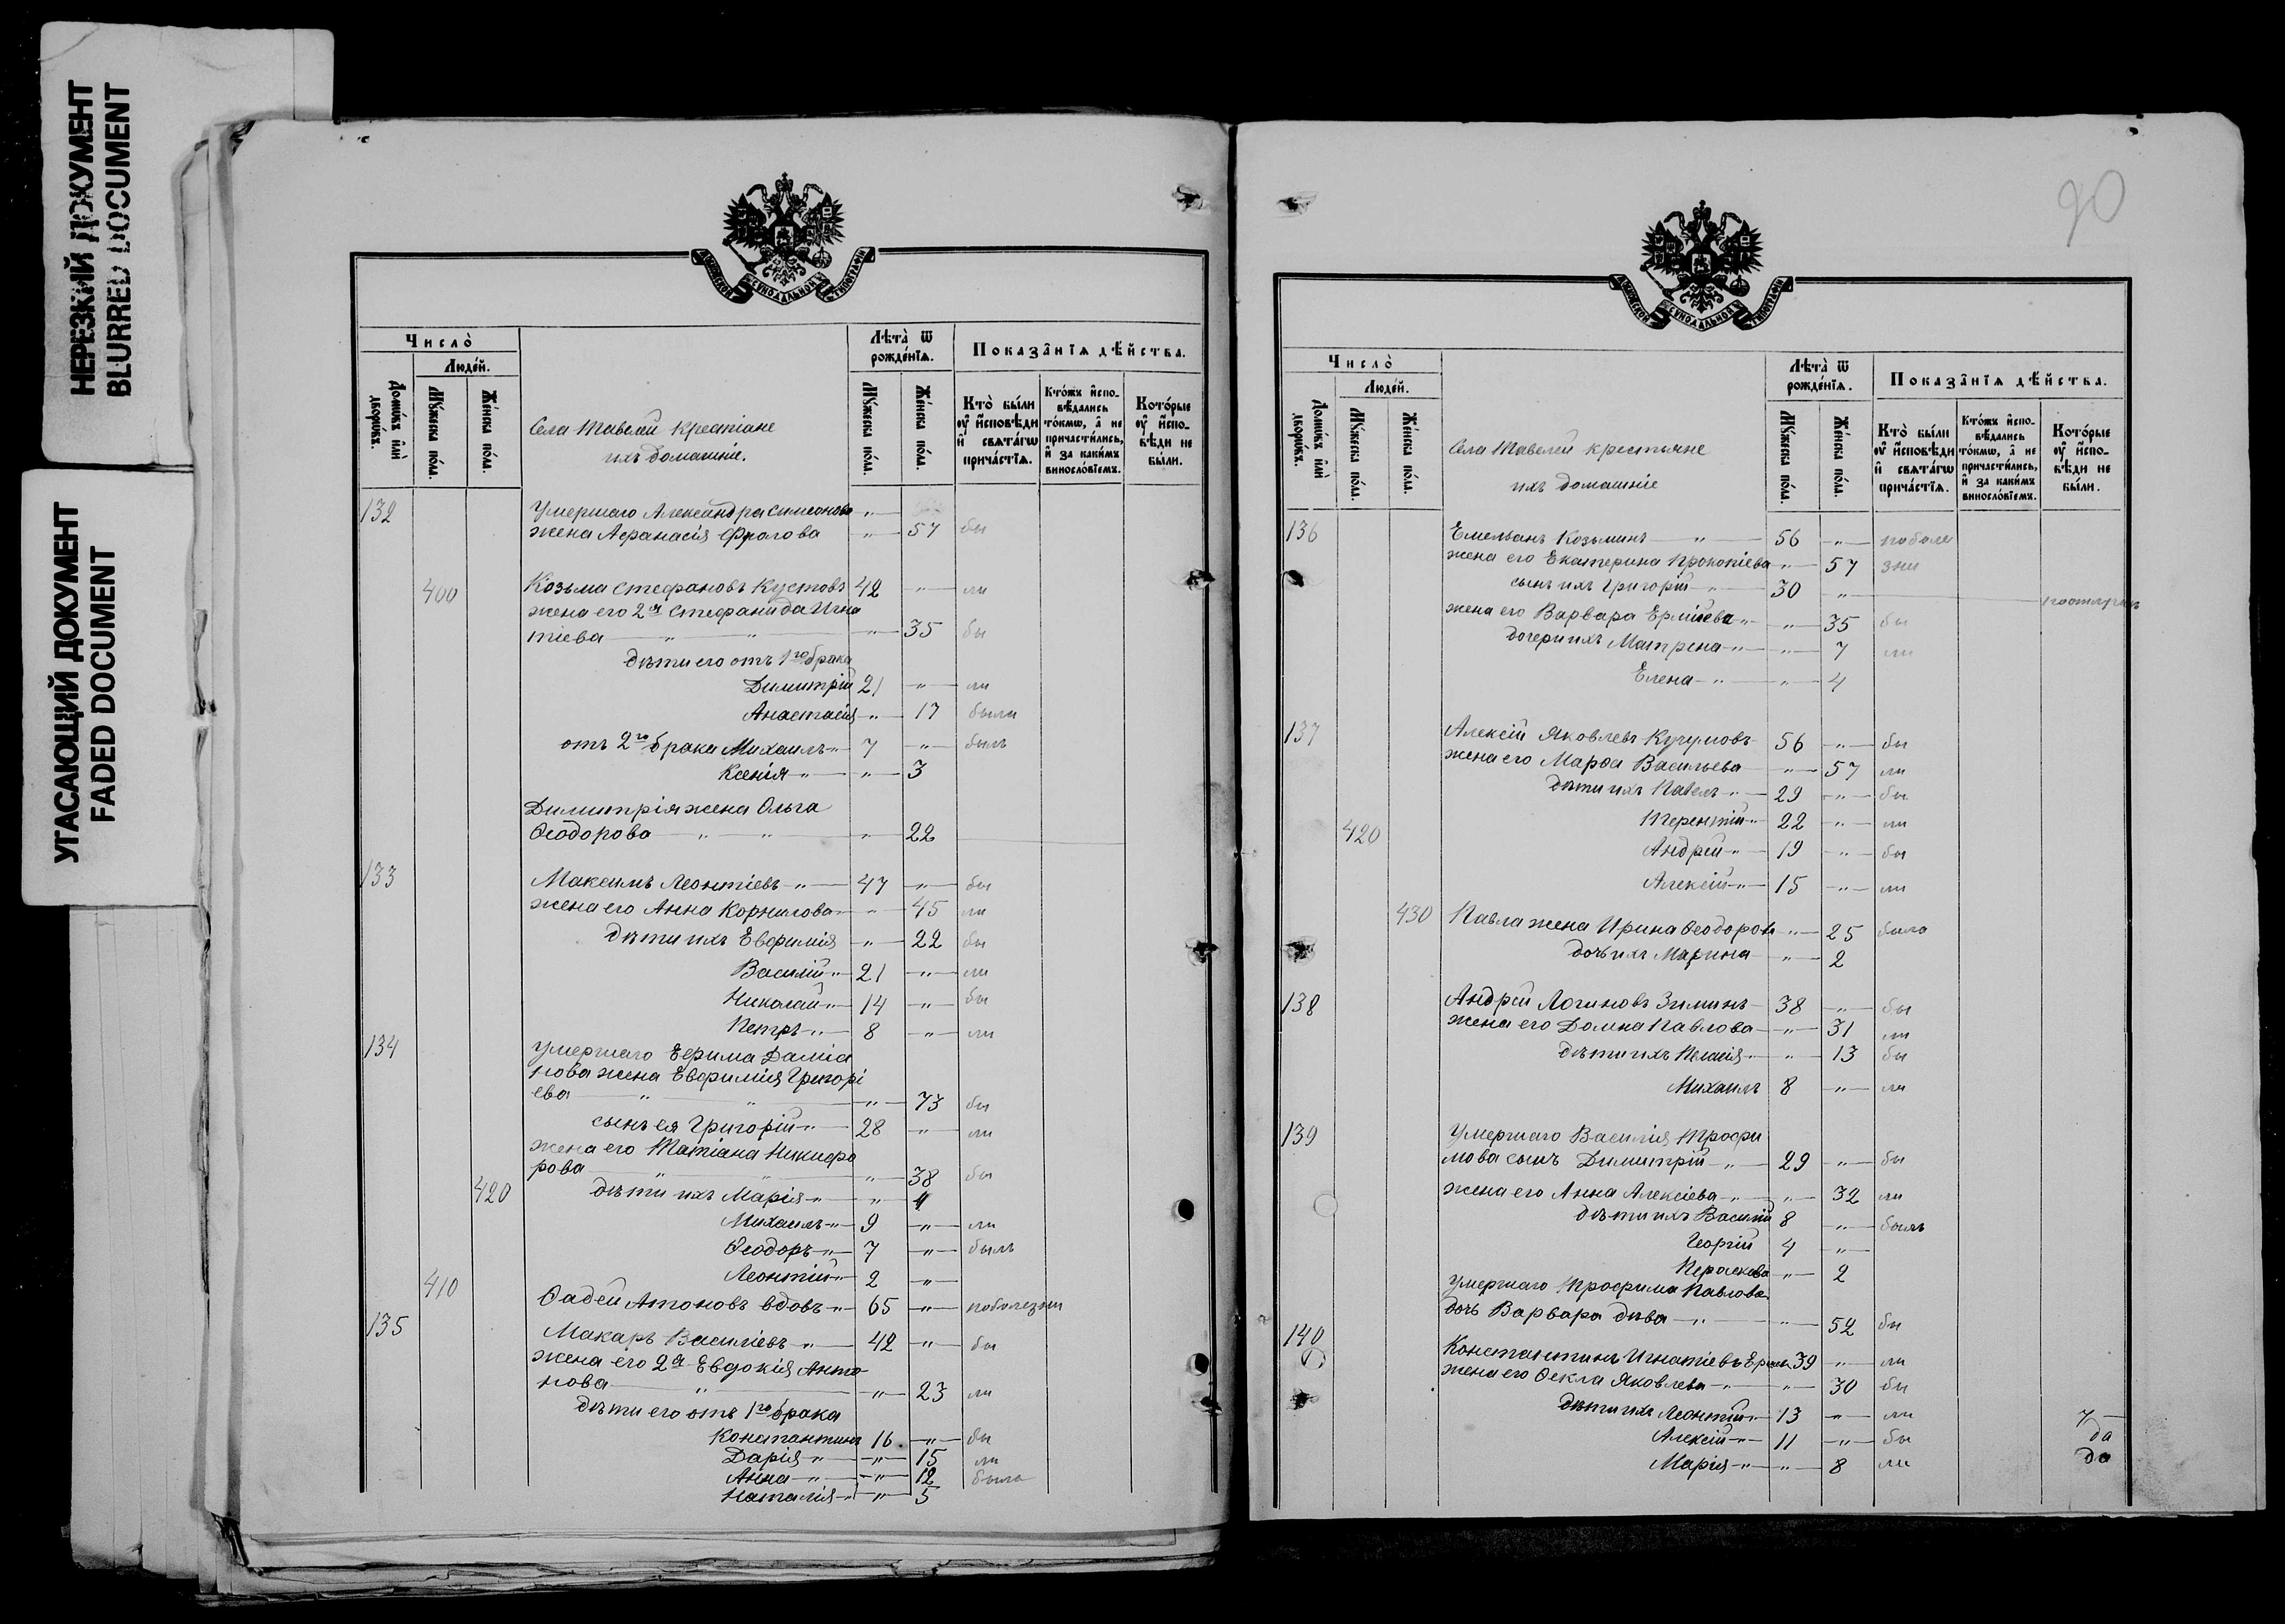 НЕРЕЗКИЙ ДОКУМЕНТ
BLURRED DOCUMENT
УГАСАЮЩИЙ ДОКУМЕНТ
FADED DOCUMENT
СѴНОДАЛЬНОЙ ТИПОГРАФІИ
Число̀
Люде́й.
Домѡ́въ и҆лѝ дворѡ́въ.
Мꙋ́жеска по́ла.
Же́нска по́ла.
Села Тавелей крестіане
ихъ домашніе.
Лѣта̀ ѿ рожде́нїѧ.
Мꙋ́жеска по́ла.
Же́нска по́ла.
Показа̑нїѧ дѣ́йства.
Кто̀ бы́ли ᲂу҆ и҆сповѣди и҆ свѧта́гѡ прича́стїѧ.
Кто́жъ и҆спо-вѣдались то́кмѡ, а҆ не причасти́лись, и҆ за каки́мъ винослов́їемъ.
Кото́рые ᲂу҆ и҆спо-вѣди не бы́ли.
132 Умершаго Александра Симеонова "
жена Афанасія Фролова " 57 бы
400 Козьма Стефановъ Кустовъ 42 " ли
жена его 2я Стефанида Игна
тіева " " " 35 бы
дѣти его отъ 1го брака
Димитрій 21 " ли
Анастасія " 17 были
отъ 2го брака Михаилъ " 7 " былъ
Ксенія " " 3
Димитрія жена Ольга
Ѳеодорова " " " 22
133 Максимъ Леонтіевъ " 47 " бы
жена его Анна Корнилова " 45 ли
дѣти ихъ Евфимія " 22 бы
Василій " 21 " ли
Николай " 14 " бы
Петръ " 8 " ли
134 Умершаго Ефима Даміа
нова жена Евфимія Григорі
ева " " " 73 бы
сынъ ея Григорій " 28 " ли
жена его Татіана Никифо
рова " " " 38 бы
420 дѣти ихъ Марія " " 4
Михаилъ " 9 " ли
Ѳеодоръ " 7 " былъ
Леонтій " 2 "
410 Ѳадей Атоновъ вдовъ " 65 " поболезни
135 Макаръ Василіевъ " 42 " бы
жена его 2я Евдокія Анто
нова " " 23 ли
дѣти его отъ 1го брака
Константинъ 16 " бы
Дарія " " 15 ли
Анна " " 12 была
Наталія " " 5
90
СѴНОДАЛЬНОЙ ТИПОГРАФІИ
Число̀
Люде́й.
Домѡ́въ и҆лѝ дворѡ́въ.
Мꙋ́жеска по́ла.
Же́нска по́ла.
Села Тавелей крестьяне
ихъ домашніе
Лѣта̀ ѿ рожде́нїѧ.
Мꙋ́жеска по́ла.
Же́нска по́ла.
Показа̑нїѧ дѣ́йства.
Кто̀ бы́ли ᲂу҆ и҆сповѣди и҆ свѧта́гѡ прича́стїѧ.
Кто́жъ и҆спо-вѣдались то́кмѡ, а҆ не причасти́лись, и҆ за каки́мъ винослов́їемъ.
Кото́рые ᲂу҆ и҆спо-вѣди не бы́ли.
136 Емельанъ Козьминъ " 56 " поболе
жена его Екатерина Прокопіева " 57 зни
сынъ ихъ Григорій " 30 "
жена его Варвара Ермиіева " " 35 бы
дочери ихъ Матрена " " 7 ли
Елена " " 4
137 Алексій Яковлевъ Кучумовъ 56 " бы
жена его Марѳа Васильева " 57 ли
дѣти ихъ Павелъ " 29 " бы
Терентій " 22 " ли
420 Андрей " 19 " бы
Алексій " 15 " ли
430 Павла жена Ирина Ѳеодоров " 25 была
дочь ихъ Марина " 2
138 Андрей Логиновъ Зиминъ 38 " бы
жена его Домна Павлова " 31 ли
дѣти ихъ Пелагія " " 13 бы
Михаилъ 8 " ли
139 Умершаго Василія Трофи
мова сынъ Димитрій " 29 " бы
жена его Анна Алексіева " " 32 ли
дѣти ихъ Василій 8 " былъ
Георгій 4 "
Пераскева " 2
Умершаго Трофима Павлова
дочь Варвара дѣва " " 52 бы
140 Константинъ Игнатіевъ 39 " ли
жена его Ѳекла Яковлева " " 30 бы
дѣти ихъ Леонтій " 13 " ли
Алексій " 11 " бы да
Марія " " 8 ли да